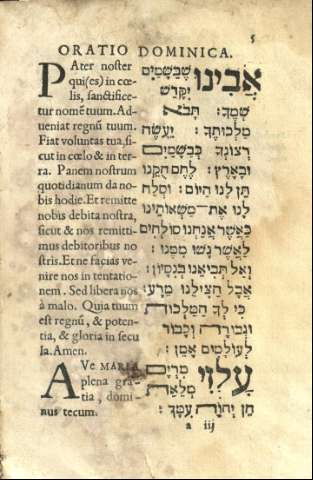 5
ORATIO DOMINICA.
PAter noster
qui(es) in cœ
lis, sanctificetur
nomẽ tuum. Ad
ueniat regnũ tuum.
Fiat voluntas tua, si
cut in cœlo & in ter
ra. Panem nostrum
quotidianum da no
bis hodie. Et remitte
nobis debita nostra,
sicut & nos remitti
mus debitoribus no
stris. Et ne facias ve
nire nos in tentatio
nem. Sed libera nos
à malo. Quia tuum
est regnũ, & poten
tia, & gloria in secu
la. Amen.
AVE MARIA
plena gra
tia, domi
nus tecum.
אבינו שבשמים
יקדש
שמך: תבא
מלכותך: יעשה
רצונך כבשמים
ובארץ: לחם חקנו
תן לנו היום: וסלח
לנו את־משאותינו
כאשר אנחנו סולחים
לאשר נשו ממנו:
ואל תביאנו בנסיון:
אבל הצילנו מרע:
כי לך המלכות
וגבורה וכבוד
לעולמים אמן:
עלזי מרים
מלאת
חן יהוה עמך:
a iij